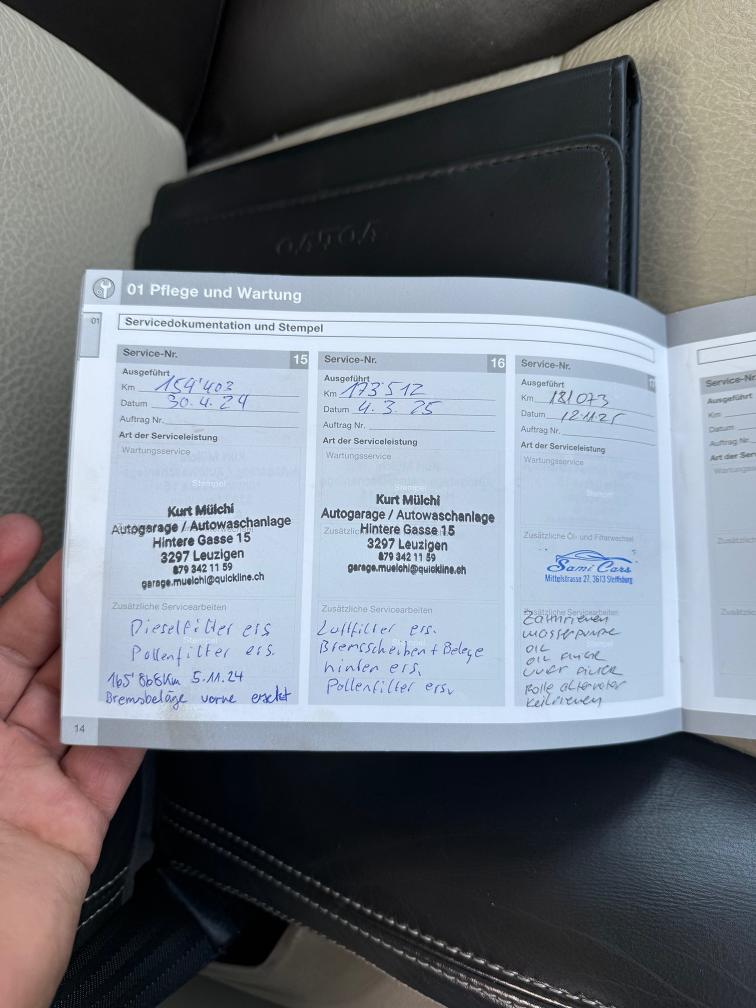 VOLVO
01 Pflege und Wartung
01
Servicedokumentation und Stempel
Service-Nr. 15
Ausgeführt
Km 154'403
Datum 30.4.24
Auftrag Nr.
Art der Serviceleistung
Wartungsservice
Stempel
Kurt Mülchi
Autogarage / Autowaschanlage
Hintere Gasse 15
3297 Leuzigen
079 342 11 59
garage.muelchi@quickline.ch
Zusätzliche Servicearbeiten
Dieselfilter ers
Pollenfilter ers.
165'868 Km 5.11.24
Bremsbeläge vorne ersetzt
14
Service-Nr. 16
Ausgeführt
Km 173'512
Datum 4.3.25
Auftrag Nr.
Art der Serviceleistung
Wartungsservice
Stempel
Kurt Mülchi
Autogarage / Autowaschanlage
Hintere Gasse 15
3297 Leuzigen
079 342 11 59
garage.muelchi@quickline.ch
Zusätzliche Servicearbeiten
Luftfilter ers.
Bremsscheiben + Beläge
hinten ers.
Pollenfilter ers.
Service-Nr.
Ausgeführt
Km 181073
Datum 12.11.25
Auftrag Nr.
Art der Serviceleistung
Wartungsservice
Stempel
Zusätzliche Öl- und Filterwechsel
Sami Cars
Mittelstrasse 27, 3613 Steffisburg
Zusätzliche Servicearbeiten
Zahnriemen
Wasserpumpe
Oil
Rolle alternator
Keilriemen
Service-Nr.
Ausgeführt
Km
Datum
Auftrag Nr.
Art der Ser
Wartungsser
Zusätzlich
Zusätzlic